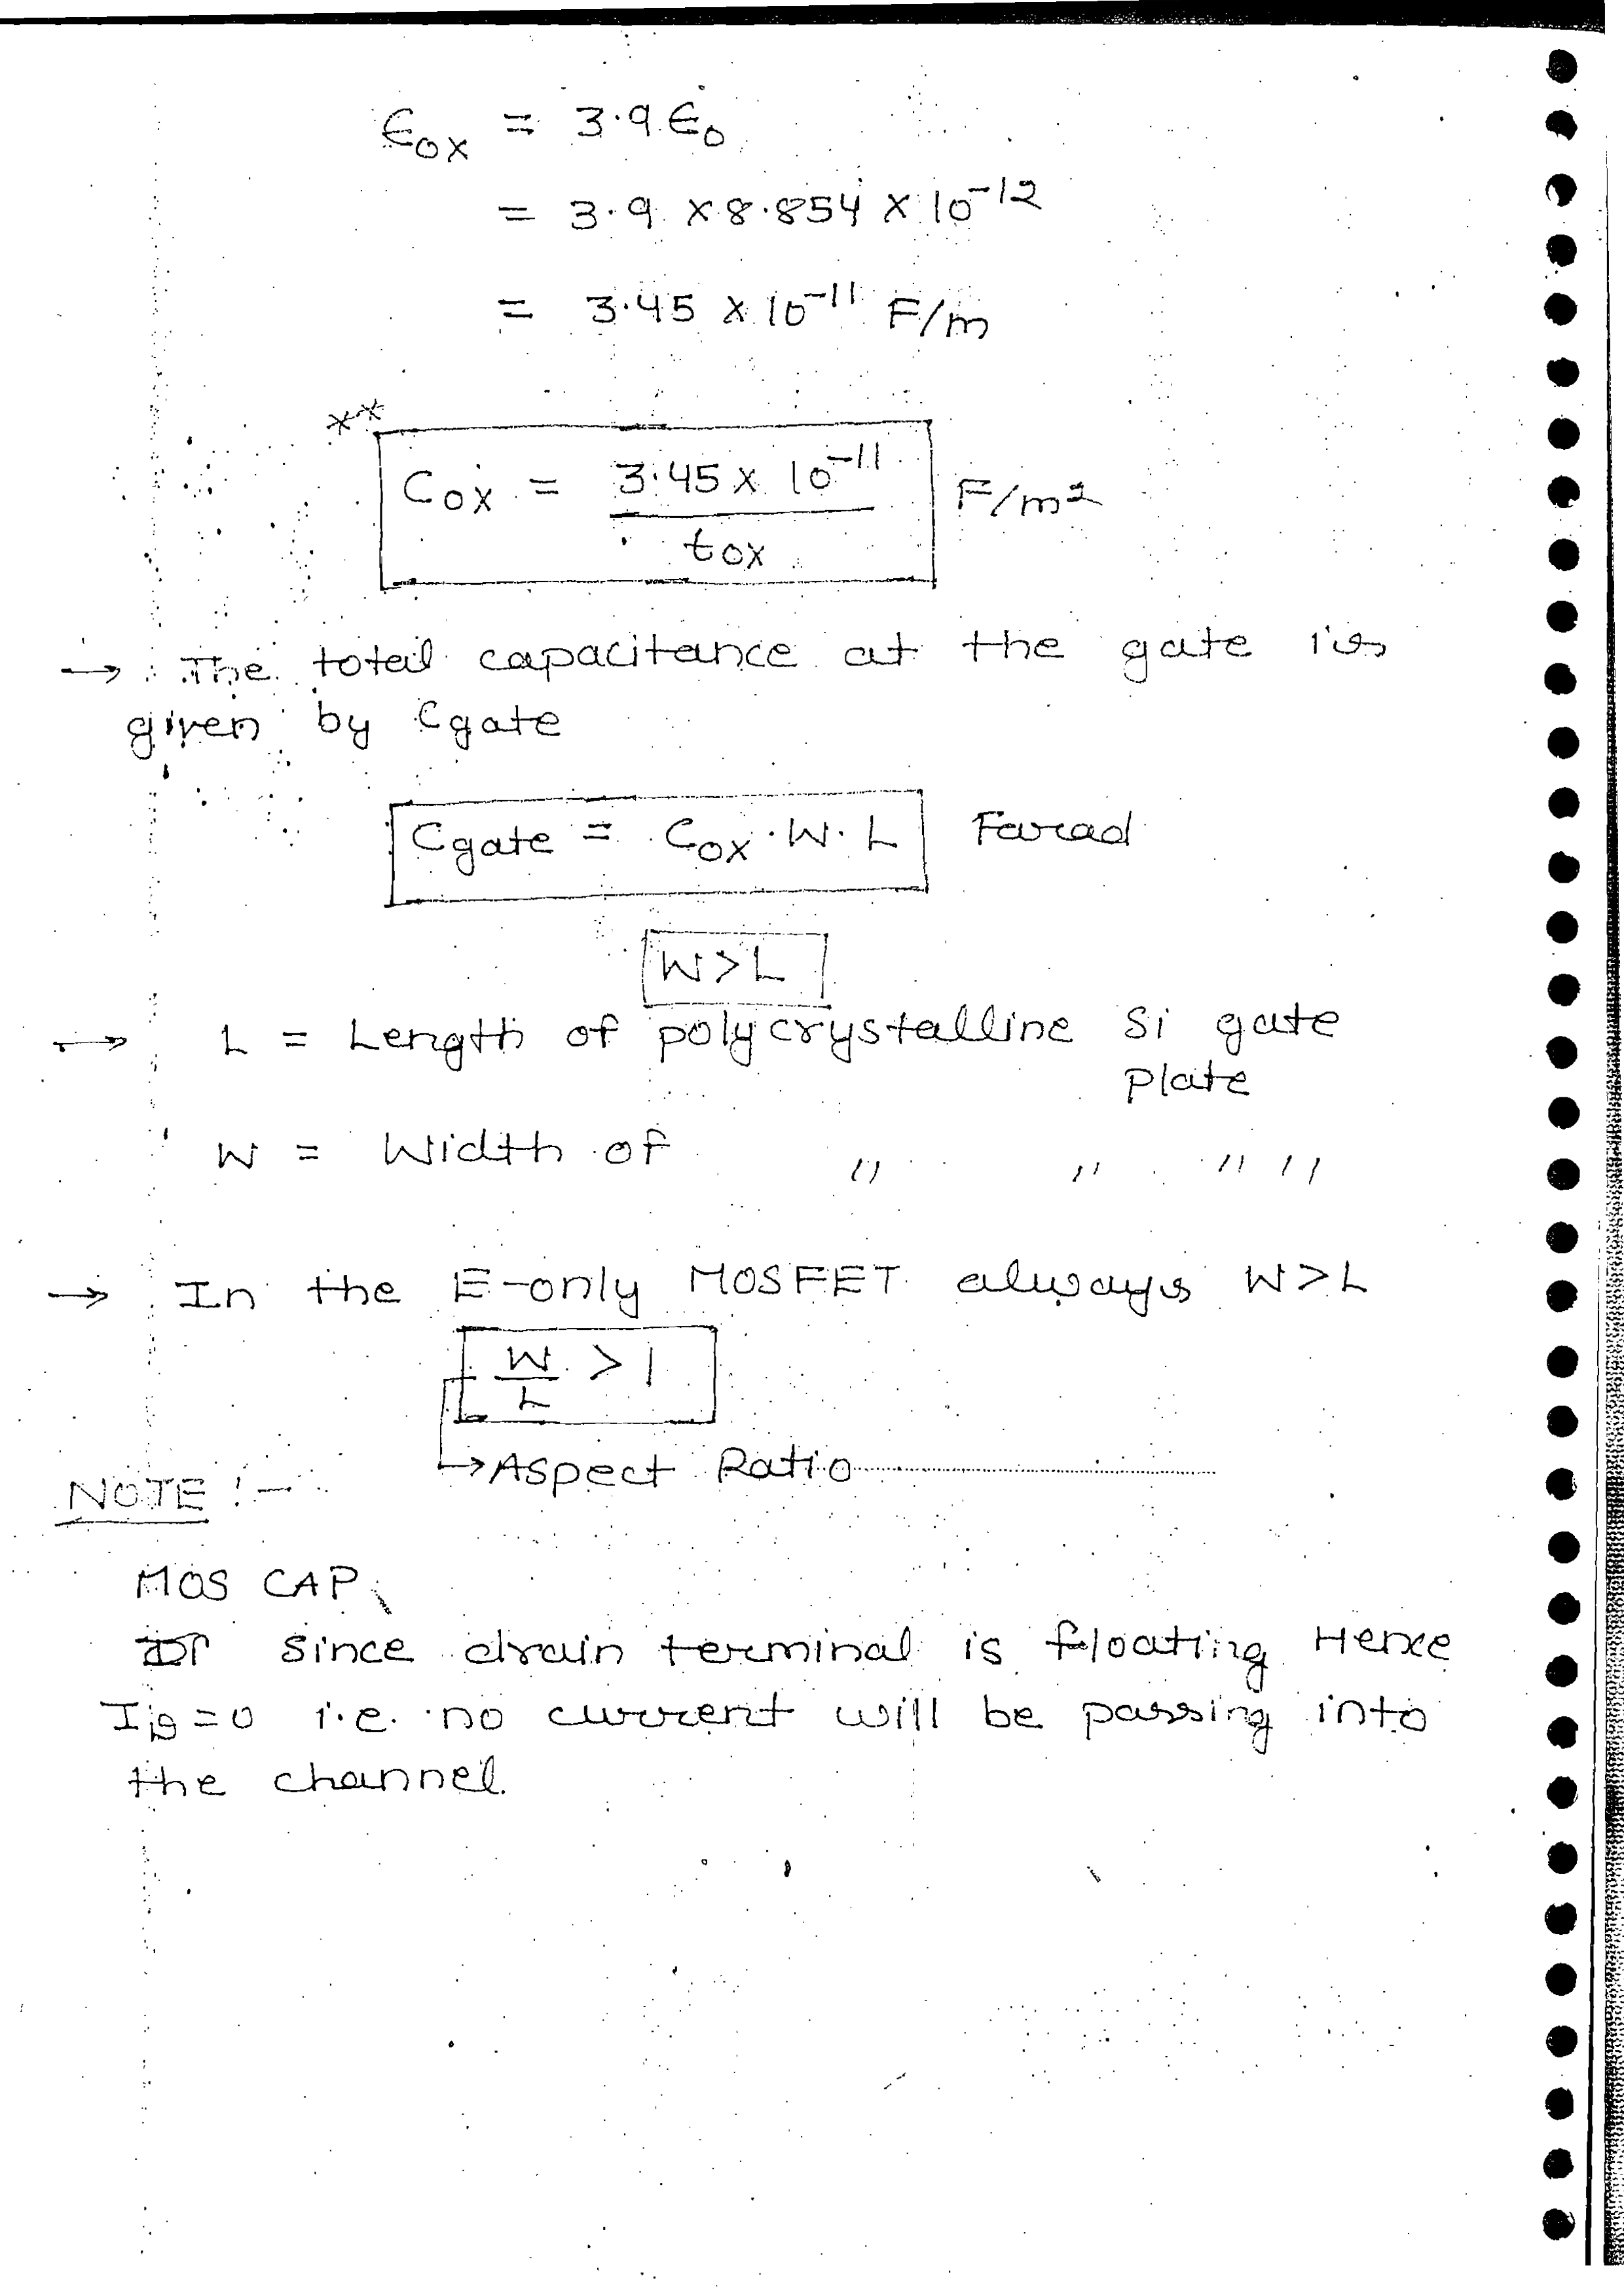 ϵox = 3.9 ϵ0
= 3.9 × 8.854 × 10^-12
= 3.45 × 10^-11 F/m
**
Cox = 3.45 × 10^-11 / tox F/m²
→ The total capacitance at the gate is
given by Cgate
Cgate = Cox · W · L Farad
W>L
→ L = Length of polycrystalline Si gate
Plate
W = Width of " " " "
→ In the E-only MOSFET always W>L
W/L > 1
→ Aspect Ratio
NOTE :-
MOS CAP
since drain terminal is floating Hence
ID=0 i.e. no current will be passing into
the channel.